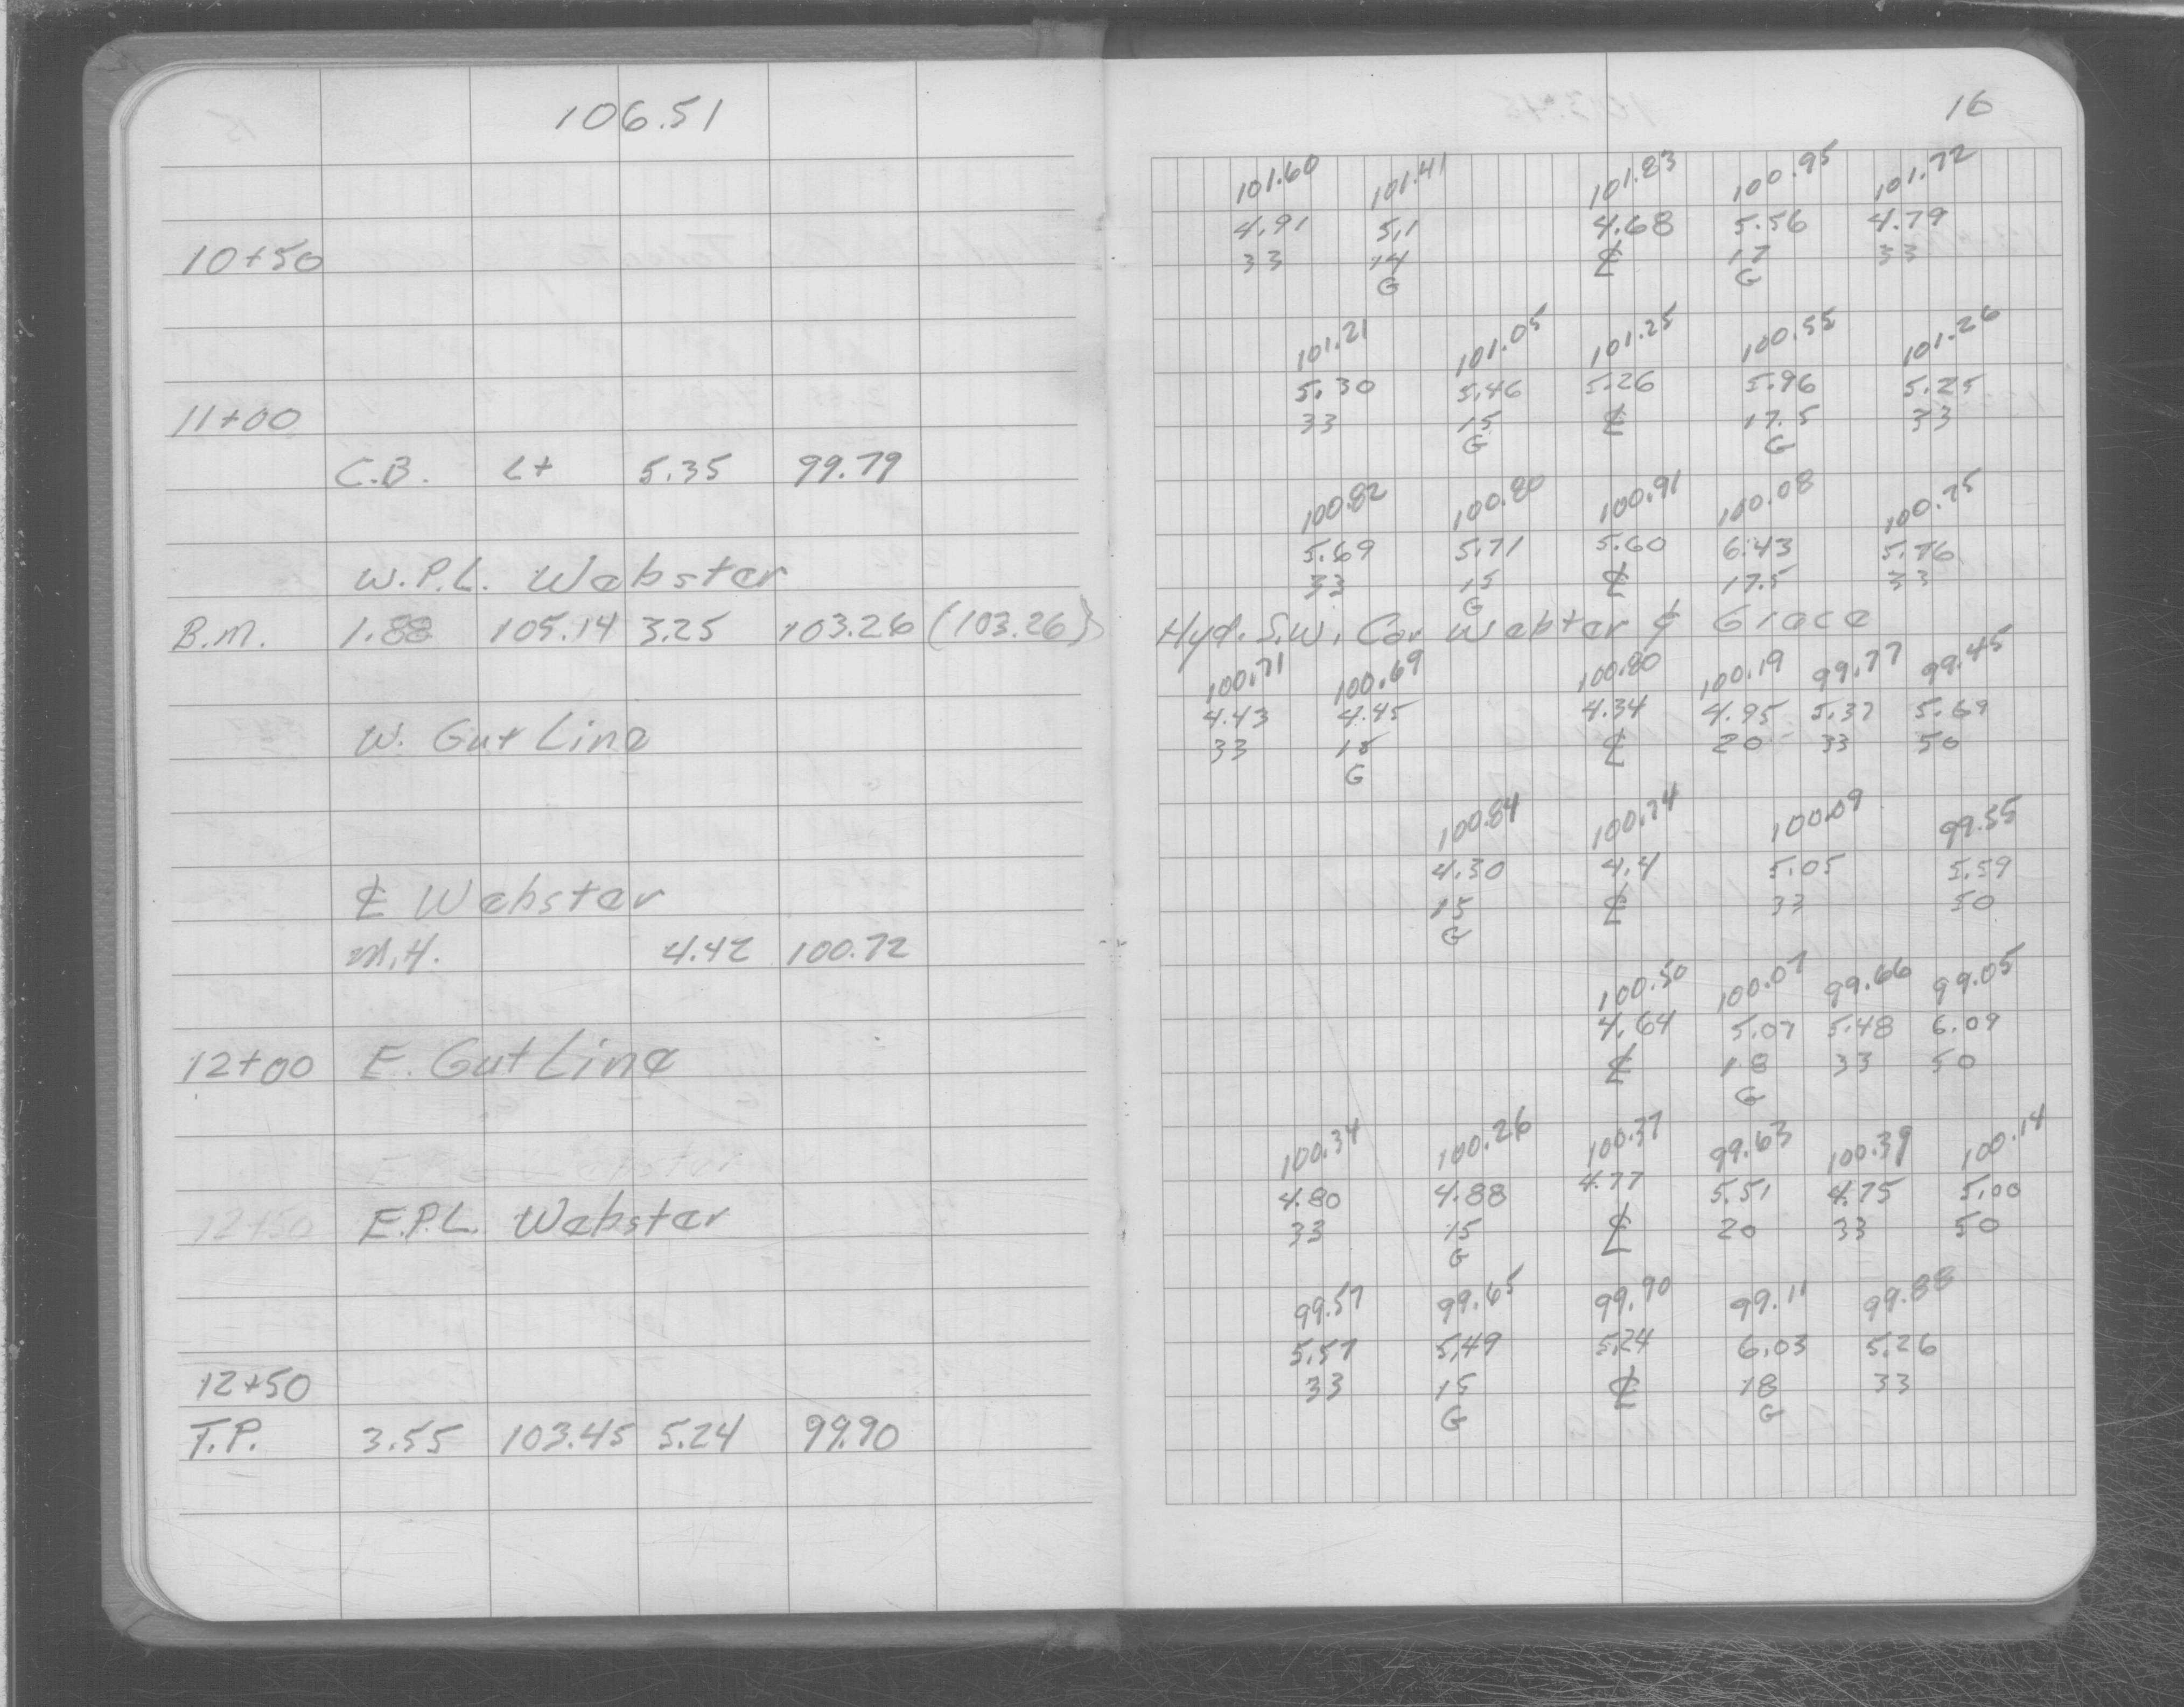 106.51
10+50
11+00
C.B. Lt 5.35 99.79
W.P.L. Webster
B.M. 1.88 105.14 3.25 103.26 (103.26)
W. Gut Line
₵ Webster
M.H. 4.42 100.72
12+00 E. Gut Line
12+50 E.P.L. Webster
12+50
T.P. 3.55 103.45 5.24 99.90
16
101.60 101.41 101.83 100.95 101.72
4.91 5.1 4.68 5.56 4.79
33 14 ₵ 17 33
G G
101.21 101.05 101.25 100.55 101.26
5.30 5.46 5.26 5.96 5.25
33 15 ₵ 17.5 33
G G
100.82 100.80 100.91 100.08 100.75
5.69 5.71 5.60 6.43 5.76
33 15 ₵ 17.5 33
G
Hyd. S.W. Cor Webter & Grace
100.71 100.69 100.80 100.19 99.77 99.45
4.43 4.45 4.34 4.95 5.37 5.69
33 15 ₵ 20 33 50
G
100.84 100.74 100.09 99.55
4.30 4.4 5.05 5.59
15 ₵ 33 50
G
100.50 100.07 99.66 99.05
4.64 5.07 5.48 6.09
₵ 18 33 50
G
100.34 100.26 100.37 99.63 100.39 100.14
4.80 4.88 4.77 5.51 4.75 5.00
33 15 ₵ 20 33 50
G
99.57 99.65 99.90 99.11 99.88
5.57 5.49 5.24 6.03 5.26
33 15 ₵ 18 33
G G